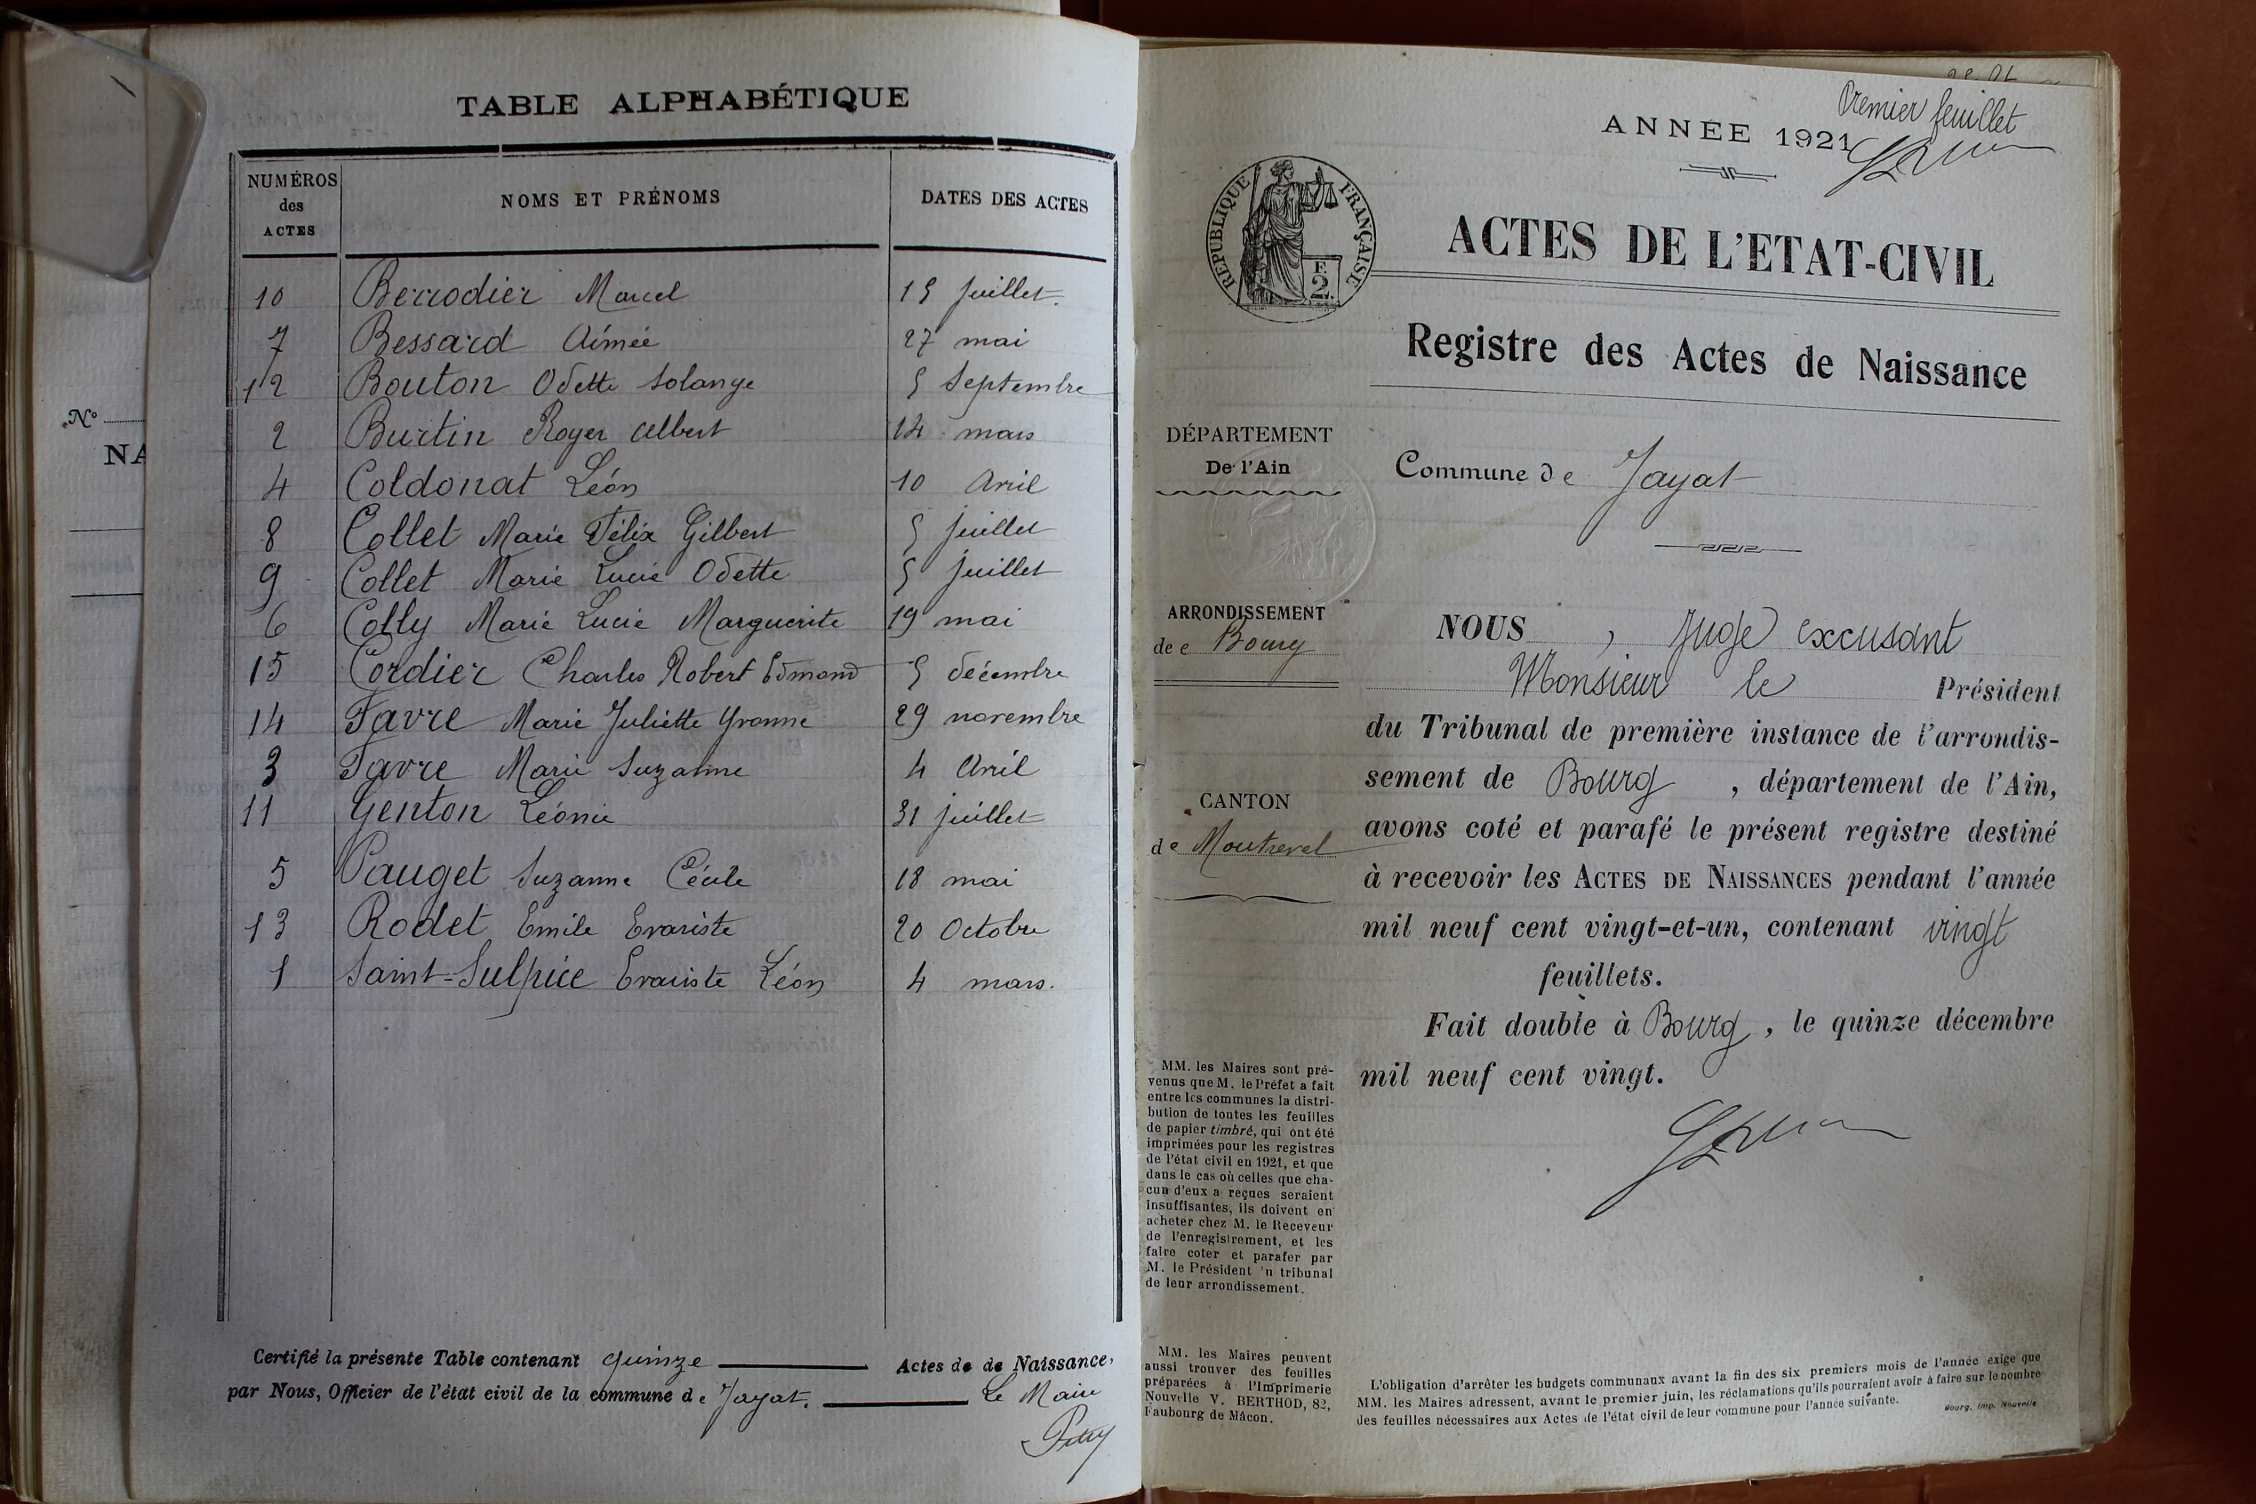 TABLE ALPHABÉTIQUE
NUMÉROS des ACTES NOMS ET PRÉNOMS DATES DES ACTES
10 Berrodier Marcel 15 juillet.
7 Bessard Aimée 27 mai
12 Bouton Odette Solange 5 Septembre
2 Burtin Roger Albert 14 mars
4 Coldonat Léon 10 Avril
8 Collet Marie Félix Gilbert 5 juillet
9 Collet Marie Lucie Odette 5 juillet
6 Colly Marie Lucie Marguerite 19 mai
15 Cordier Charles Robert Edmond 5 décembre
14 Favre Marie Juliette Yvonne 29 novembre
3 Favre Marie Suzanne 4 Avril
11 Genton Léonie 31 juillet
5 Pauget Suzanne Cécile 18 mai
13 Rodet Emile Evariste 20 Octobre
1 Saint-Sulpice Evariste Léon 4 mars.
Certifié la présente Table contenant quinze Actes de de Naissance,
par Nous, Officier de l'état civil de la commune de Jayat.
Le Maire
N°
NA
Premier feuillet
ANNÉE 1921
RÉPUBLIQUE FRANÇAISE
F.
2
ACTES DE L'ETAT-CIVIL
Registre des Actes de Naissance
DÉPARTEMENT
De l'Ain
Commune de Jayat
ARRONDISSEMENT
de e Bourg
CANTON
de Montrevel
NOUS , Juge excusant
Monsieur le Président
du Tribunal de première instance de l'arrondis-
sement de Bourg , département de l'Ain,
avons coté et parafé le présent registre destiné
à recevoir les ACTES DE NAISSANCES pendant l'année
mil neuf cent vingt-et-un, contenant vingt
feuillets.
Fait double à Bourg, le quinze décembre
mil neuf cent vingt.
MM. les Maires sont pré-
venus que M. le Préfet a fait
entre les communes la distri-
bution de toutes les feuilles
de papier timbré, qui ont été
imprimées pour les registres
de l'état civil en 1921, et que
dans le cas où celles que cha-
cun d'eux a reçues seraient
insuffisantes, ils doivent en
acheter chez M. le Receveur
de l'enregistrement, et les
faire coter et parafer par
M. le Président 'n tribunal
de leur arrondissement.
MM. les Maires peuvent
aussi trouver des feuilles
préparées à l'Imprimerie
Nouvelle V. BERTHOD, 82,
Faubourg de Mâcon.
L'obligation d'arrêter les budgets communaux avant la fin des six premiers mois de l'année exige que
MM. les Maires adressent, avant le premier juin, les réclamations qu'ils pourraient avoir à faire sur le nombre
des feuilles nécessaires aux Actes de l'état civil de leur commune pour l'année suivante.
Bourg. Imp. Nouvelle